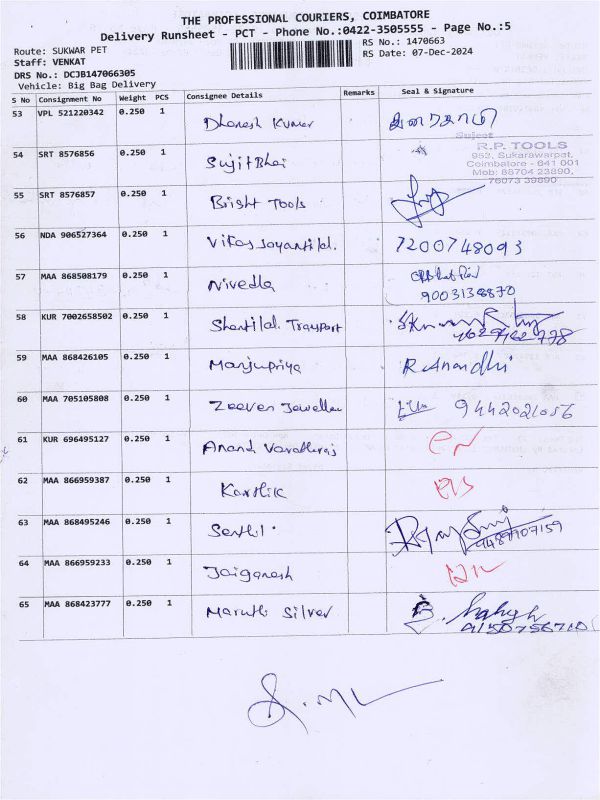 THE PROFESSIONAL COURIERS, COIMBATORE
Delivery Runsheet - PCT - Phone No.:0422-3505555 - Page No.:5
Route: SUKWAR PET
RS No.: 1470663
Staff: VENKAT
RS Date: 07-Dec-2024
DRS No.: DCJB147066305
Vehicle: Big Bag Delivery
S No Consignment No Weight PCS Consignee Details Remarks Seal & Signature
53 VPL 521220342 0.250 1 Dhanesh Kumar
Suject
R.P. TOOLS
952, Sukarawarpat,
Coimbatore - 641 001
Mob: 88704 23890,
76073 39890
54 SRT 8576856 0.250 1 Sujit Bhai
55 SRT 8576857 0.250 1 Bright Tools
56 NDA 906527364 0.250 1 Vikas Jayantilal. 7200748093
57 MAA 868508179 0.250 1 Nivedha
9003138870
58 KUR 7002658502 0.250 1 Shantilal Transport
59 MAA 868426105 0.250 1 Manjupriya R. Anandhi
60 MAA 705105808 0.250 1 Zeeven Jewellers 9442021056
61 KUR 696495127 0.250 1 Anand Varathraj
62 MAA 866959387 0.250 1 Karthik
63 MAA 868495246 0.250 1 Senthil.
9489707159
64 MAA 866959233 0.250 1 Jaiganesh
65 MAA 868423777 0.250 1 Maruthi Silver